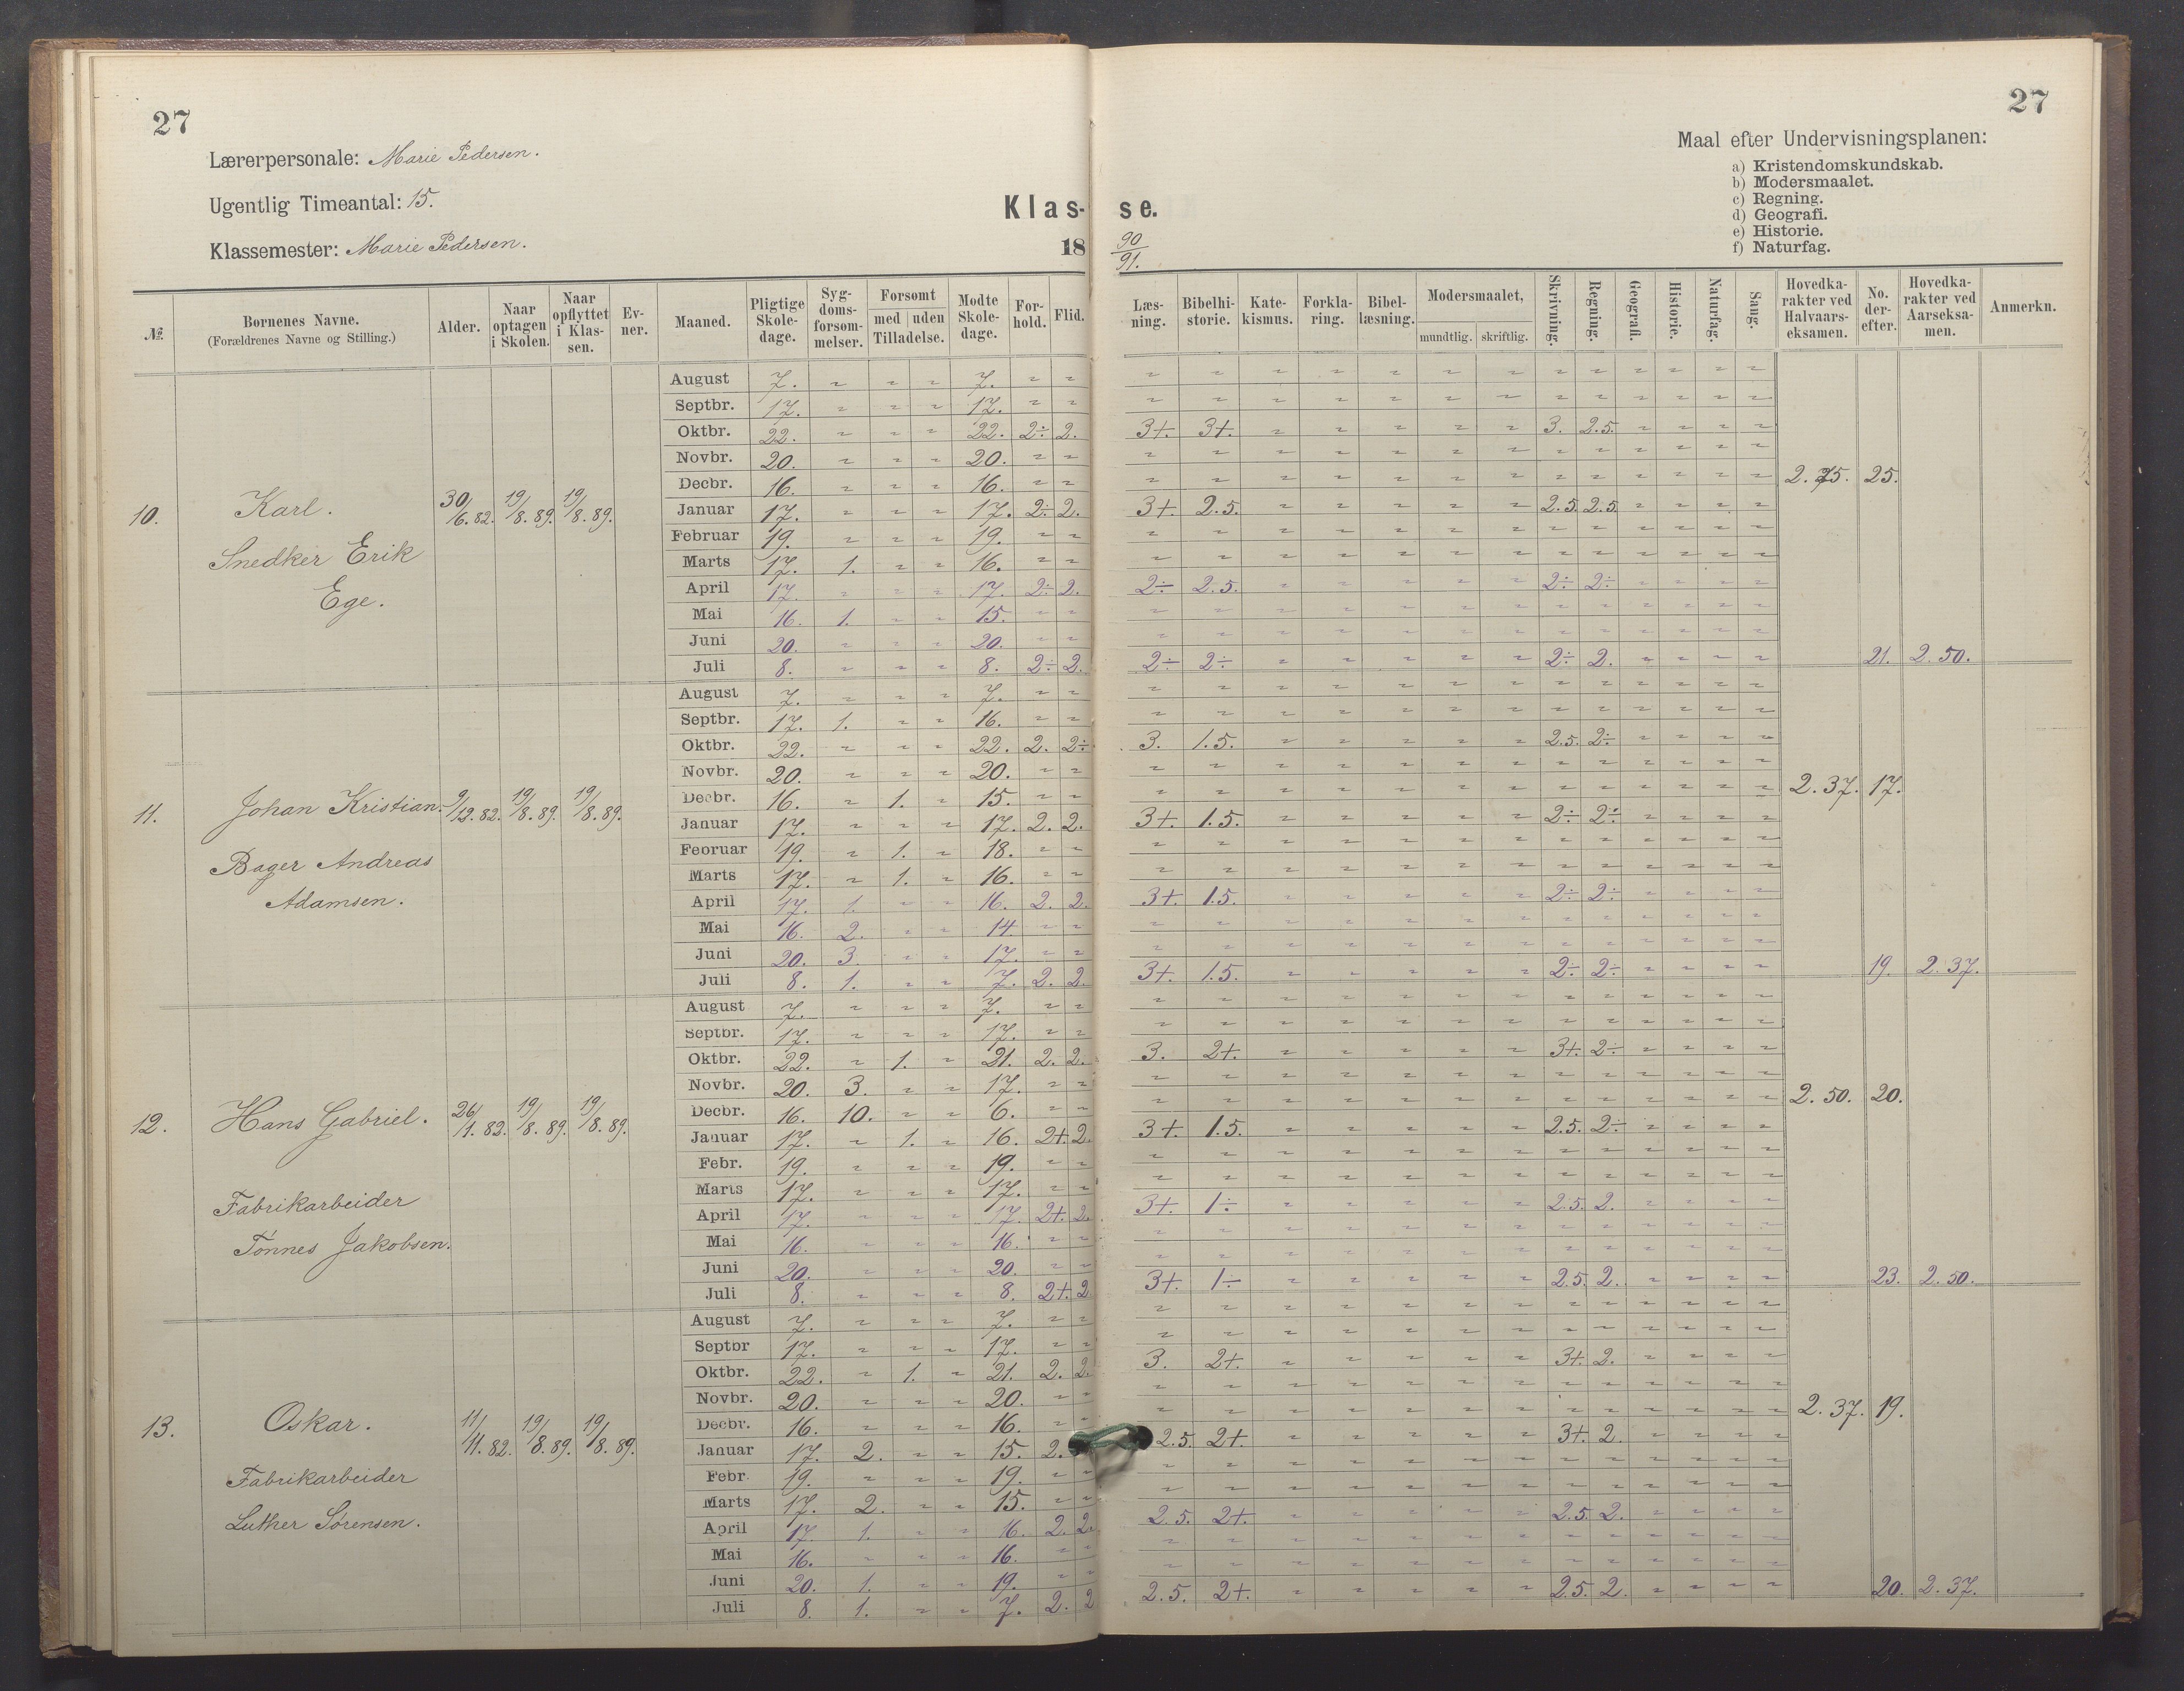 27
27
Lærerpersonale: Marie Pedersen.
Ugentlig Timeantal: 15.
Klassemester: Marie Pedersen.
Klas- se.
18 90/91.
Maal efter Undervisningsplanen:
a) Kristendomskundskab.
b) Modersmaalet.
c) Regning.
d) Geografi.
e) Historie.
f) Naturfag.
№ Børnenes Navne. (Forældrenes Navne og Stilling.) Alder. Naar optagen i Skolen. Naar opflyttet i Klassen. Evner. Maaned. Pligtige Skoledage. Sygdomsforsømmelser. Forsømt med uden Tilladelse. Mødte Skoledage. Forhold. Flid. Læsning. Bibelhistorie. Katekismus. Forklaring. Bibellæsning. Modersmaalet, mundtlig. skriftlig. Skrivning. Regning. Geografi. Historie. Naturfag. Sang. Hovedkarakter ved Halvaarseksamen. No. derefter. Hovedkarakter ved Aarseksamen. Anmerkn.
10. Karl. Snedker Erik Ege. 30/6.82. 19/8.89. 19/8.89.
August 7. " " " 7. " " " " " " " " " " " " " " "
Septbr. 17. " " " 17. " " " " " " " " " " " " " " "
Oktbr. 22. " " " 22. 2÷ 2. 3+. 3+. " " " " " 3. 2.5. " " " "
Novbr. 20. " " " 20. " " " " " " " " " " " " " " "
Decbr. 16. " " " 16. " " " " " " " " " " " " " " " 2.75. 25.
Januar 17. " " " 17. 2÷ 2. 3+. 2.5. " " " " " 2.5. 2.5. " " " "
Februar 19. " " " 19. " " " " " " " " " " " " " " "
Marts 17. 1. " " 16. " " " " " " " " " " " " " " "
April 17. " " " 17. 2÷ 2. 2÷ 2.5. " " " " " 2÷ 2÷ " " " "
Mai 16. 1. " " 15. " " " " " " " " " " " " " " "
Juni 20. " " " 20. " " " " " " " " " " " " " " "
Juli 8. " " " 8. 2÷ 2. 2÷ 2÷ " " " " " 2÷ 2. " " " " 21. 2.50.
11. Johan Kristian. Bager Andreas Adamsen. 9/12.82. 19/8.89. 19/8.89.
August 7. " " " 7. " " " " " " " " " " " " " " "
Septbr. 17. 1. " " 16. " " " " " " " " " " " " " " "
Oktbr. 22. " " " 22. 2. 2÷ 3. 1.5. " " " " " 2.5. 2÷ " " " "
Novbr. 20. " " " 20. " " " " " " " " " " " " " " "
Decbr. 16. " 1. " 15. " " " " " " " " " " " " " " " 2.37. 17.
Januar 17. " " " 17. 2. 2. 3+. 1.5. " " " " " 2÷ 2÷ " " " "
Februar 19. " 1. " 18. " " " " " " " " " " " " " " "
Marts 17. " 1. " 16. " " " " " " " " " " " " " " "
April 17. 1. " " 16. 2. 2. 3+. 1.5. " " " " " 2÷ 2÷ " " " "
Mai 16. 2. " " 14. " " " " " " " " " " " " " " "
Juni 20. 3. " " 17. " " " " " " " " " " " " " " "
Juli 8. 1. " " 7. 2. 2. 3+. 1.5. " " " " " 2÷ 2÷ " " " " 19. 2.37.
12. Hans Gabriel. Fabrikarbeider Tønnes Jakobsen. 26/1.82. 19/8.89. 19/8.89.
August 7. " " " 7. " " " " " " " " " " " " " " "
Septbr. 17. " " " 17. " " " " " " " " " " " " " " "
Oktbr. 22. " 1. " 21. 2. 2. 3. 2+. " " " " " 3+. 2÷ " " " "
Novbr. 20. 3. " " 17. " " " " " " " " " " " " " " "
Decbr. 16. 10. " " 6. " " " " " " " " " " " " " " " 2.50. 20.
Januar 17. " 1. " 16. 2+. 2. 3+. 1.5. " " " " " 2.5. 2÷ " " " "
Febr. 19. " " " 19. " " " " " " " " " " " " " " "
Marts 17. " " " 17. " " " " " " " " " " " " " " "
April 17. " " " 17. 2+. 2. 3+. 1÷ " " " " " 2.5. 2. " " " "
Mai 16. " " " 16. " " " " " " " " " " " " " " "
Juni 20. " " " 20. " " " " " " " " " " " " " " "
Juli 8. " " " 8. 2+. 2 3+. 1÷ " " " " " 2.5. 2. " " " " 23. 2.50.
13. Oskar. Fabrikarbeider Luther Sørensen. 11/11.82. 19/8.89. 19/8.89.
August 7. " " " 7. " " " " " " " " " " " " " " "
Septbr 17. " " " 17. " " " " " " " " " " " " " " "
Oktbr. 22. " 1. " 21. 2. 2. 3. 2+. " " " " " 3+. 2. " " " "
Novbr. 20. " " " 20. " " " " " " " " " " " " " " "
Decbr. 16. " " " 16. " " " " " " " " " " " " " " " 2.37. 19.
Januar 17. 2. " " 15. 2. 2.5. 2+. " " " " " 3+. 2. " " " "
Febr 19. " " " 19. " " " " " " " " " " " " " " "
Marts 17. 2. " " 15. " " " " " " " " " " " " " " "
April 17 1. " " 16. 2. 2. 2.5. 2+. " " " " " 2.5. 2. " " " "
Mai 16. " " " 16. " " " " " " " " " " " " " " "
Juni 20. 1. " " 19. " " " " " " " " " " " " " " "
Juli 8. 1. " " 7. 2. 2 2.5. 2+. " " " " " 2.5. 2. " " " " 20. 2.37.